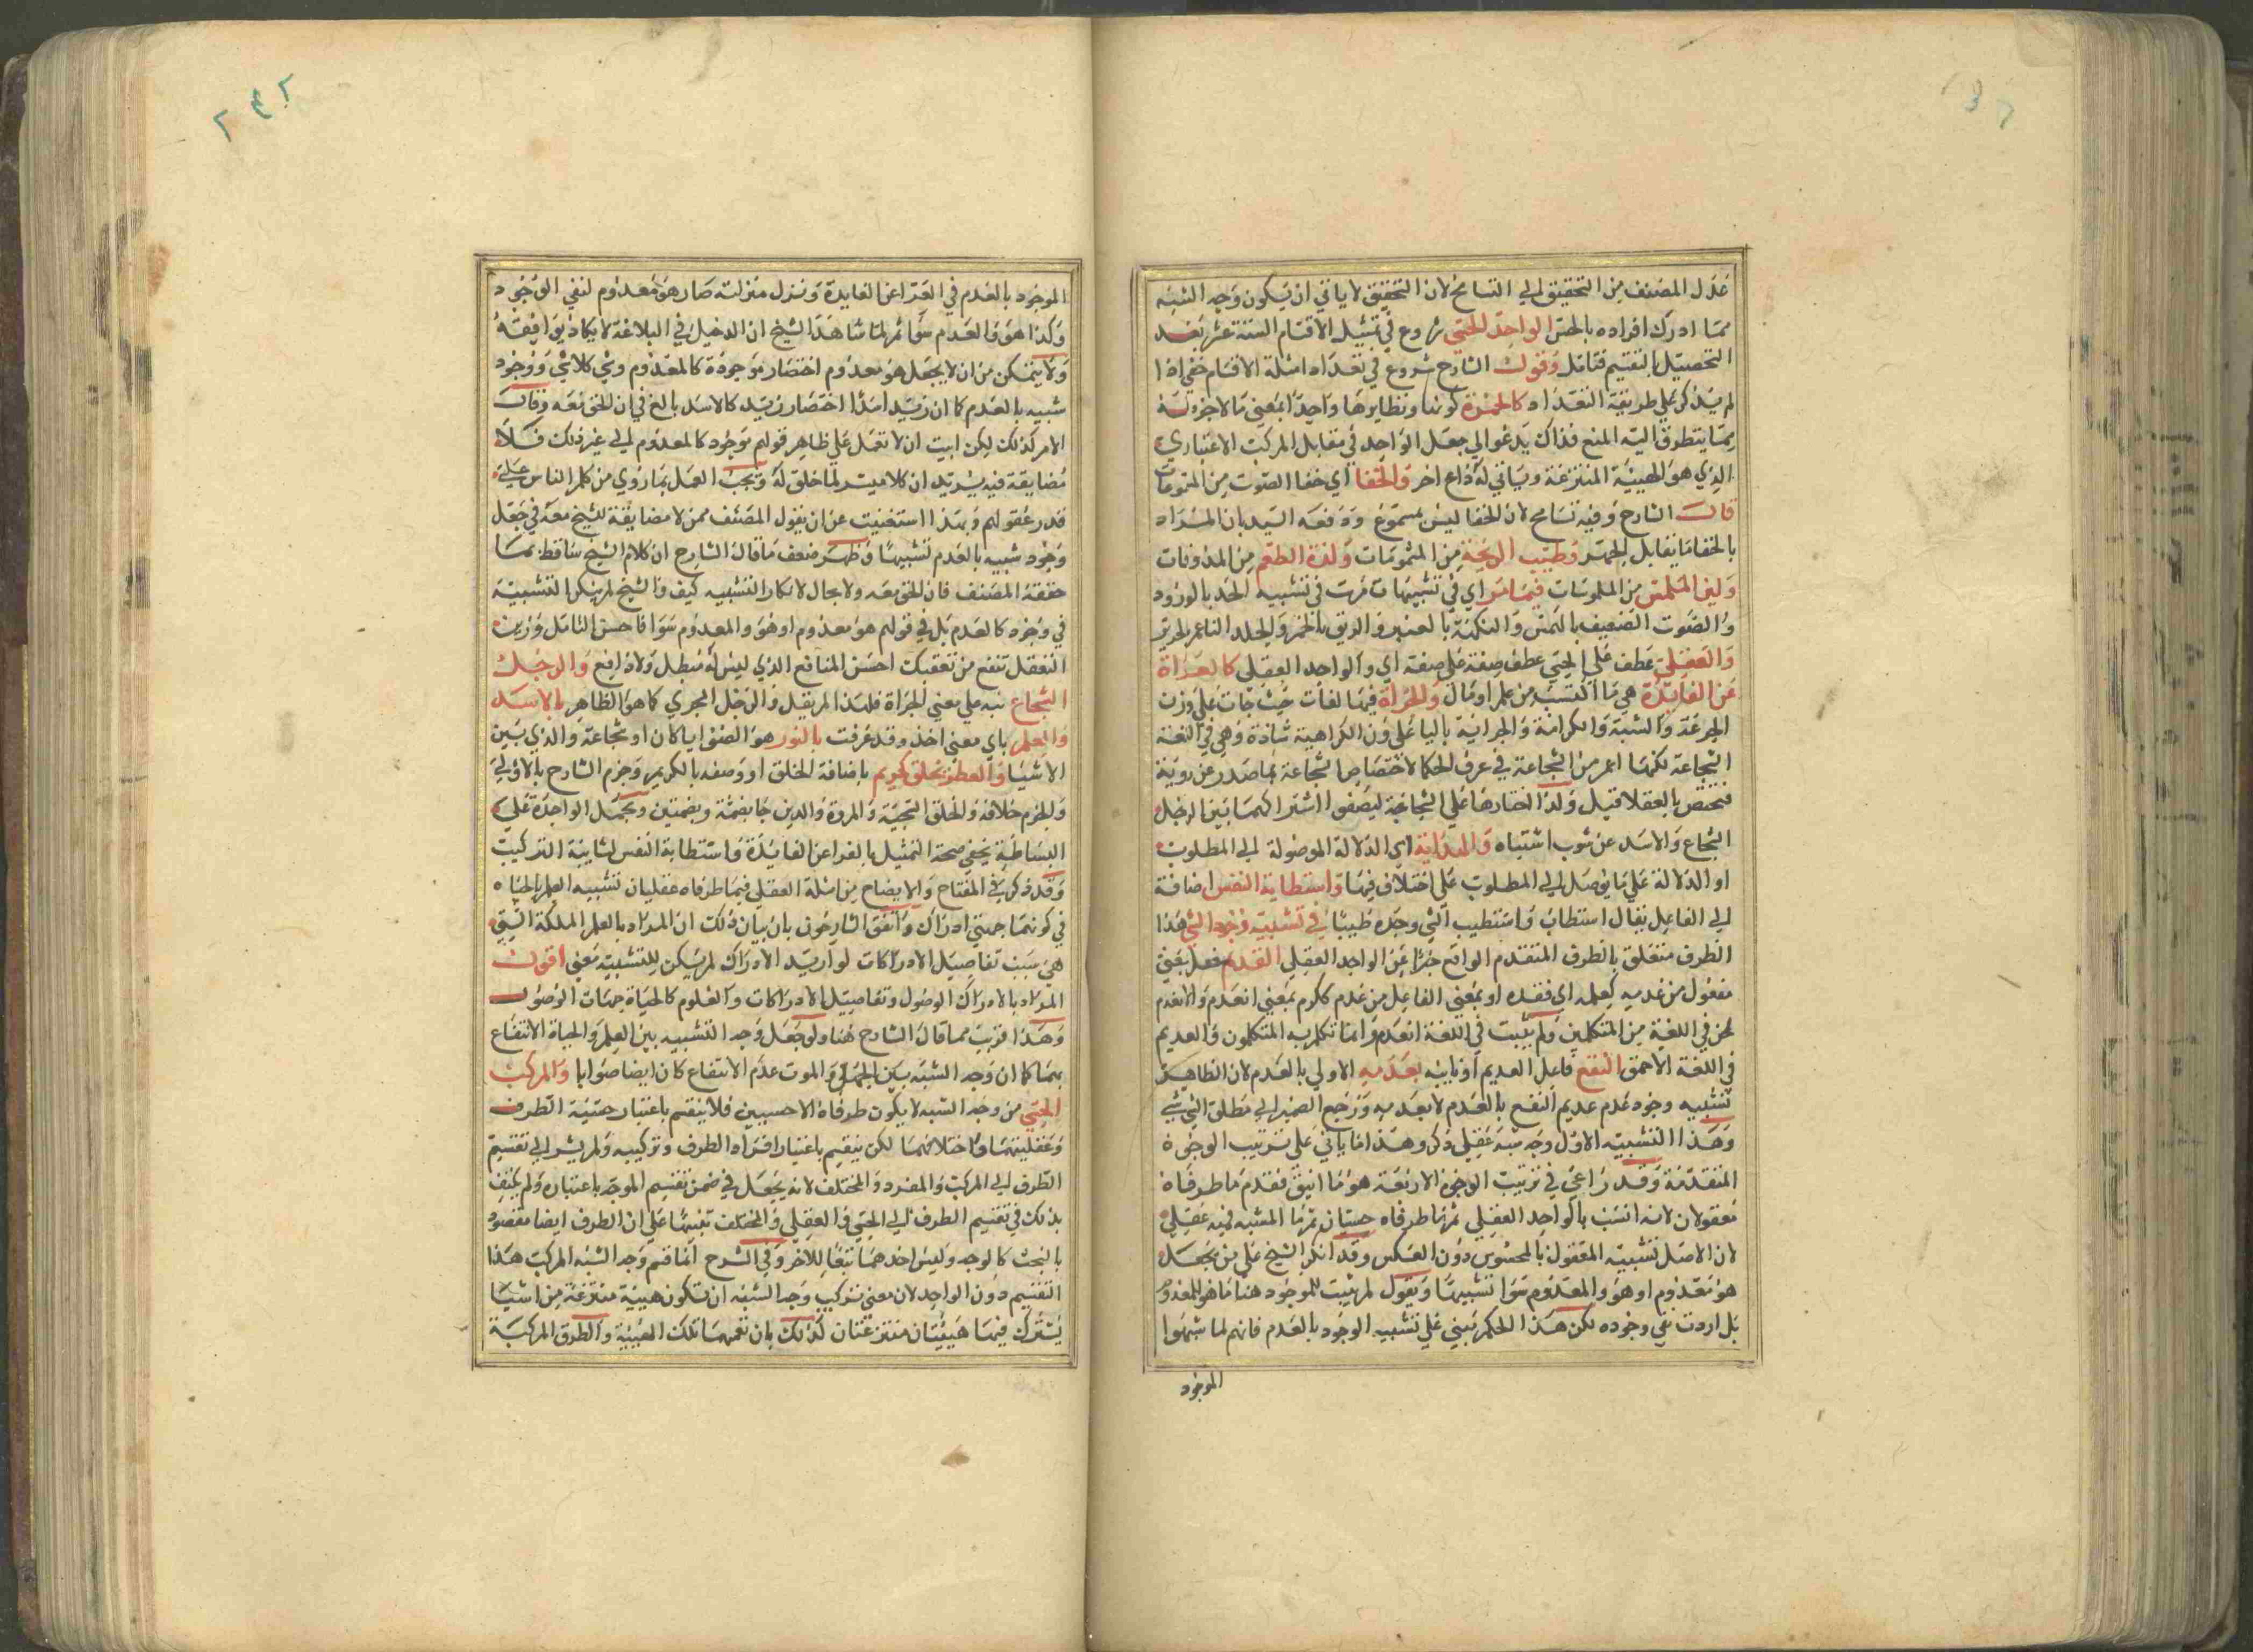 عدل المصنف من التحقيق الي التسامح لان التحقيق لا ياتي ان يكون وجه الشبه
مما ادرك افراده بالحس الواحد الحسي شروع في تمثيل الاقسام الستة عشر بعد
التحصيل بالتقسيم فتامل وقول الشارح شروع في تعداد امثلة الاقسام خفي اذا
لم يذكر علي طريقة التعداد كالحمرة كونها ونظايرها واحدا بمعني ما لا جزو له
مما يتطرق اليه المنع فذاك يدعو الي جعل الواحد في مقابل المركب الاعتباري
الذي هو الهيئة المنتزعة وياتي له داع اخر والخفا اي خفا الصوت من المسموعات
قال الشارح وفيه تسامح لان الخفا ليس بمسموع ودفعه السيد بان المراد
بالخفا ما يقابل الجهر وطيب الريحة من المشمومات ولذة الطعم من المذوقات
ولين الملمس من الملموسات فيما مر اي في تشبيهات مرت في تشبيه الخد بالورد
والصوت الضعيف بالهمس والنكهة بالعنبر والريق بالخمر والجلد الناعم بالحرير
والعقلي عطف علي الحسي عطف صفة علي صفة اي والواحد العقلي كالعراة
عن الفايدة هي ما اكتسبته من علم او مال والجراة فيها لغات حيث جات علي وزن
الجرعة والثبة والكرامة والجراية باليا علي وزن الكراهية شاذة وهي في اللغة
الشجاعة لكنها اعم من الشجاعة في عرف الحكما لاختصاص الشجاعة بما صدر عن روية
فيختص بالعقلا قيل ولذا اختارها علي الشجاعة ليصفو اشتراكهما بين الرجل
الشجاع والاسد عن شوب اشتباه والهداية اي الدلالة الموصولة الي المطلوب
او الدلالة علي ما يوصل الي المطلوب علي اختلاف فيها واستطابة النفس اضافة
الي الفاعل يقال استطاب واستطيب الشي وجده طيبا في تشبيه وجود الشي هذا
الظرف متعلق بالظرف المتقدم الواقع خبرا عن الواحد العقلي العديم فعيل بمعني
مفعول من عدمه كعلمه اي فقده او بمعني الفاعل من عدم ككرم بمعني انعدم والانعدم
لحن في اللغة من المتكلمين ولم يثبت في اللغة انعدم وانما تكلم به المتكلمون والعديم
في اللغة الاحمق النفع فاعل العديم او نايبه بعدمه الاولي بالعدم لان الظاهر
تشبيه وجود عدم عديم النفع بالعدم لا بعدمه ورجع الضمير الي مطلق الشي شي
وهذا التشبيه الاول وجه شبه عقلي ذكر وهذا ما ياتي علي ترتيب الوجوه
المتقدمة وقد راعي في ترتيب الوجوه الاربعة هو ما انيق فقدم ما طرفاه
معقولان لانه انسب بالواحد العقلي ثم ما طرفاه حسيان ثم ما المشبه فيه عقلي
لان الاصل تشبيه المعقول بالمحسوس دون العكس وقد انكر الشيخ علي من يجعل
هو معدوم او هو والمعدوم سوا تشبيها ويقول لم يثبت للموجود هنا ما هو للمعدوم
بل اردت نفي وجوده لكن هذا الحكم مبني علي تشبيه الوجود بالعدم فانهم لما شبهوا
الموجود
الموجود بالعدم في العرا عن الفايدة ونزل منزلته صار هو معدوم لنفي الوجود
وكذا هو والعدم سوا ثم لما شاهد الشيخ ان الدخيل في البلاغة لا يكاد يوافقه
ولا يتمكن من ان لا يجعل هو معدوم اختصار موجوده كالمعدوم وشي كلا شي ووجود
شبيه بالعدم كما ان زيد اسدا اختصار زيد كالاسد بالغ في ان الحق معه وقال
الامر كذلك لكن ابيت ان لا تعمل علي ظاهر قولهم موجود كالمعدوم الي غير ذلك فلا
مضايقة فيه يريد ان كلا ميسر لما خلق له ويجب العمل بما روي من كلم الناس علي
قدر عقولهم وبهذا استغنيت عن ان يقول المصنف ممن لا مضايقة للشيخ معه في جعل
وجود شبيه بالعدم تشبيها وظهر ضعف ما قال الشارح ان كلام الشيخ ساقط مما
حققه المصنف فان الحق معه ولا مجال لانكار التشبيه كيف والشيخ لم ينكر التشبيه
في وجوده كالعدم بل في قولهم هو معدوم او هو والمعدوم سوا فاحسن التامل وزين
التعقل تنفع من تعقبك احسن المنافع الذي ليس له مبطل ولا دافع والرجل
الشجاع نبه علي معني الجراة فلهذا لم يقل والرجل الجري كما هو الظاهر بالاسد
والعلم باي معني اخذ وقد عرفت بالنور هو الضو ايا كان او شعاعه والذي يبين
الاشيا والعطر بخلق كريم باضافة الخلق او وصفه بالكريم وجزم الشارح بالاولي
والجزم خلافه والخلق السجية والمروة والدين جا بضمة وبضمتين وبجعل الواحدة علي
البساطة يخفي صحة التمثيل بالعرا عن الفايدة واستطابة النفس لشايبة التركيب
وقد ذكر في المفتاح والايضاح من امثلة العقلي فيما طرفاه عقليان تشبيه العلم بالحياه
في كونهما جهتي ادراك واتفق الشارحون بان بيان ذلك ان المراد بالعلم الملكة التي
هي سبب تفاصيل الادراكات لو اريد الادراك لم يكن للتشبيه معني اقول
المراد بالادراك الوصول وتفاصيل الادراكات والعلوم كالحياة جهات الوصول
وهذا قريب مما قال الشارح هنا ولو جعل وجه التشبيه بين العلم والحياة الانتفاع
بهما كما ان وجه الشبه بين الجهل والموت عدم الانتفاع كان ايضا صوابا والمركب
الحسي من وجه الشبه لا يكون طرفاه الا حسيين فلا ينقسم باعتبار حسية الطرف
وعقليتهما واختلافهما لكن ينقسم باعتبار افراد الطرف وتركيبه ولم يشر الي تقسيم
الطرف الي المركب والمفرد والمختلف لانه يجعل في ضمن تقسيم الوجه باعتباره ولم يكتف
بذلك في تقسيم الطرف الي الحسي والعقلي والمختلف تنبيها علي ان الطرف ايضا مقصود
بالبحث كالوجه وليس احدهما تبعا للاخر وفي الشرح انما قسم وجه الشبه المركب هذا
التقسيم دون الواحد لان معني تركيب وجه الشبه ان تكون هيئة منتزعة من اشيا
يشترك فيها هيئتان منتزعتان كذلك بان تعمهما تلك الهيئة والطرف المركبة
٢٣٢